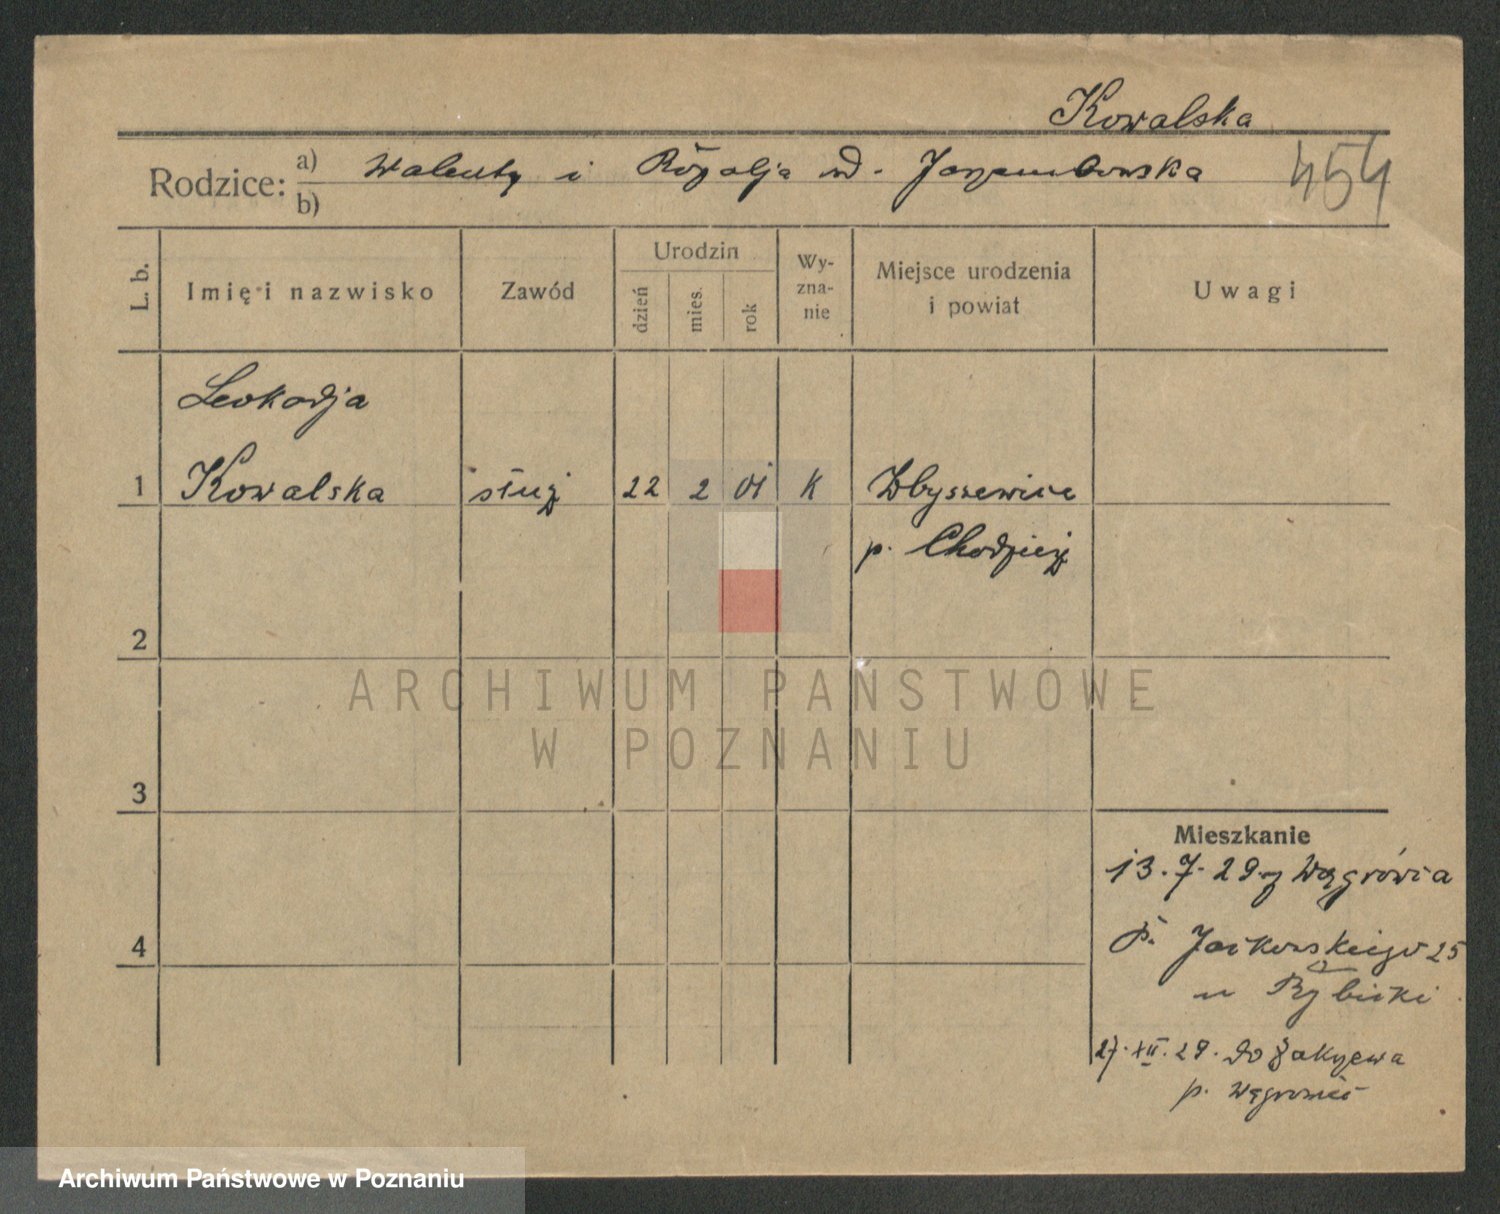 Kowalska
Rodzice: a) Walenty i Rózalja ud. Jarzembowska
b)
454
L. b.
Imię i nazwisko
Zawód
Urodzin
dzień
mies.
rok
Wy-
zna-
nie
Miejsce urodzenia
i powiat
Uwagi
Leokadja
1 Kowalska służ 22 2 01 K Zbyszewice
p. Chodzież
2
3
4
ARCHIWUM PAŃSTWOWE
W POZNANIU
Mieszkanie
13.7.29 z Wągrówca
Jackowskiego 25
u Rybicki
27.XII.29. do Zakrzewa
p. Wągrowiec
Archiwum Państwowe w Poznaniu